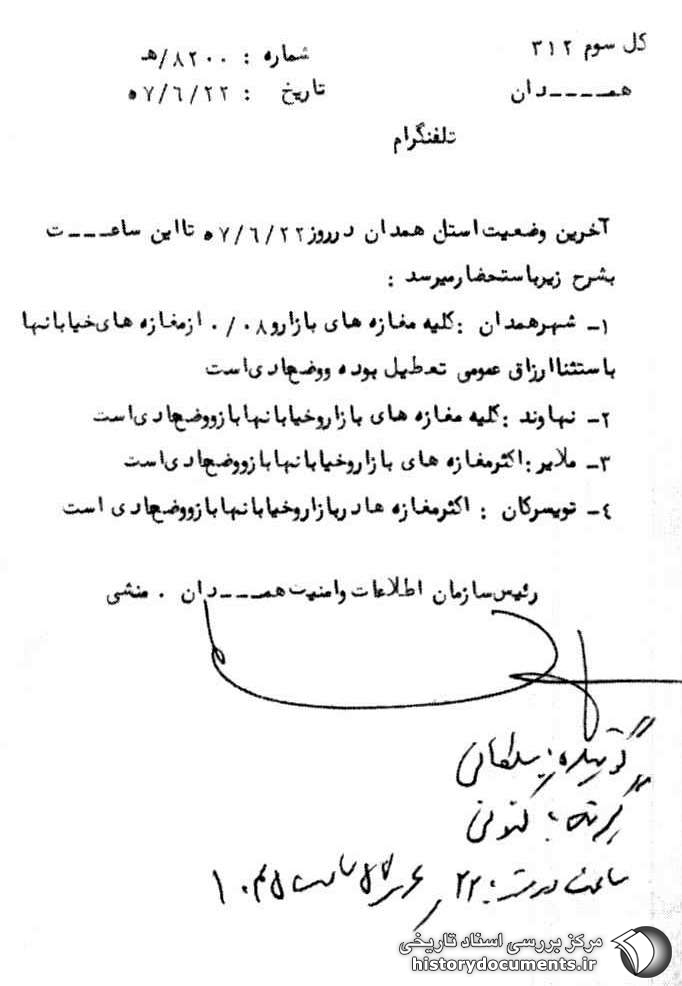 کل سوم ۳۱۲
شماره : ۸۲۰۰/هـ
همــــدان
تاریخ : ۵۷/۶/۲۲
تلفنگرام
آخرین وضعیت استان همدان در روز ۵۷/۶/۲۲ تا این ساعـــت
بشرح زیر باستحضار میرسد :
۱- شهر همدان : کلیه مغازه های بازار و ۰/۰۸ از مغازه های خیابانها
باستثنا ارزاق عمومی تعطیل بوده و وضع عادی است
۲- نهاوند : کلیه مغازه های بازار و خیابانها باز و وضع عادی است
۳- ملایر : اکثر مغازه های بازار و خیابانها باز و وضع عادی است
۴- تویسرکان : اکثر مغازه ها در بازار و خیابانها باز و وضع عادی است
رئیس سازمان اطلاعات و امنیت همـــدان . منشی
گوینده : سلطانی
گیرنده :
ساعت : ۲۲
مرکز بررسی اسناد تاریخی
historydocuments.ir